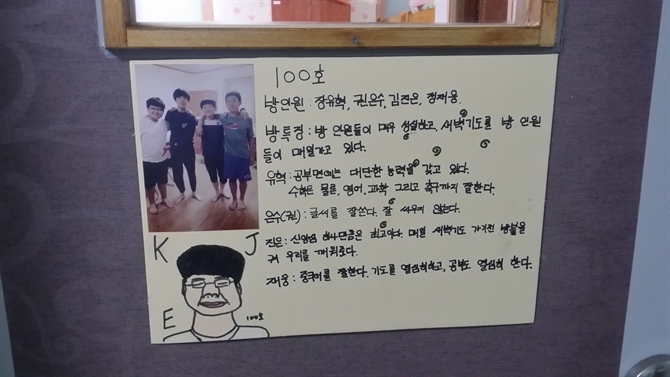 100호
방인원: 장유혁, 권은수, 김진은, 정재웅.
방특징: 방 인원들이 매우 성실하고, 새벽기도를 방 인원
들이 매일가고 있다.
유혁: 공부면에는 대단한 능력을 갖고 있다.
수학은 물론, 영어, 과학 그리고 축구까지 잘한다.
은수(권): 글씨를 잘쓴다. 잘 싸우지 않는다.
진은: 신앙심 하나만큼은 최고이다. 매일 새벽기도 가기전 방불을
켜 우리를 깨워준다.
재웅: 중국어를 잘한다. 기도를 열심히하고, 공부도 열심히 한다.
K J
E 100호